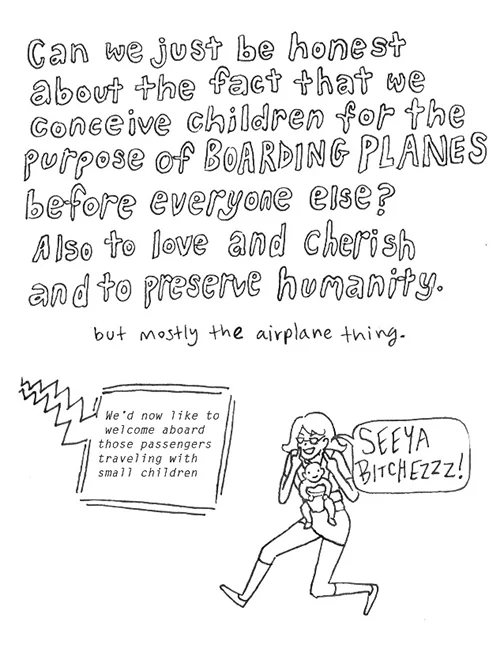 Can we just be honest
about the fact that we
conceive children for the
purpose of BOARDING PLANES
before everyone else?
Also to love and cherish
and to preserve humanity.
but mostly the airplane thing.
We'd now like to
welcome aboard
those passengers
traveling with
small children
SEEYA
BITCHEZZZ!